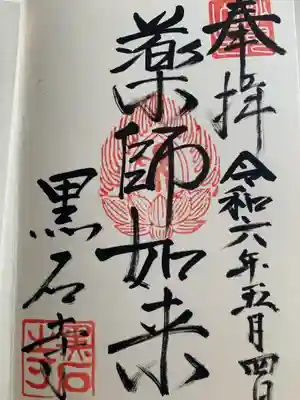 奉拝
令和六年五月四日
薬師如来
黒石寺